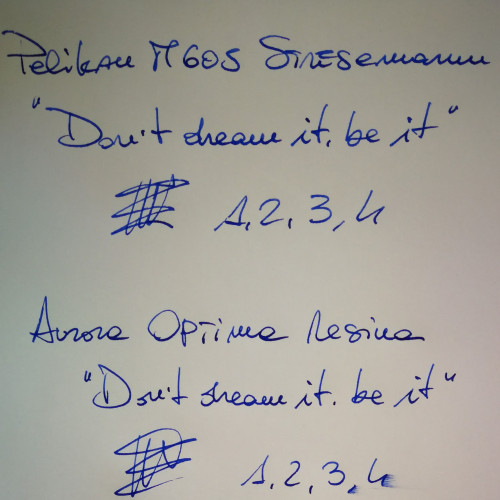 Pelikan M605 Stresemann
"Don't dream it, be it"
1, 2, 3, 4
Aurora Optima Resina
"Don't dream it. be it"
1, 2, 3, 4